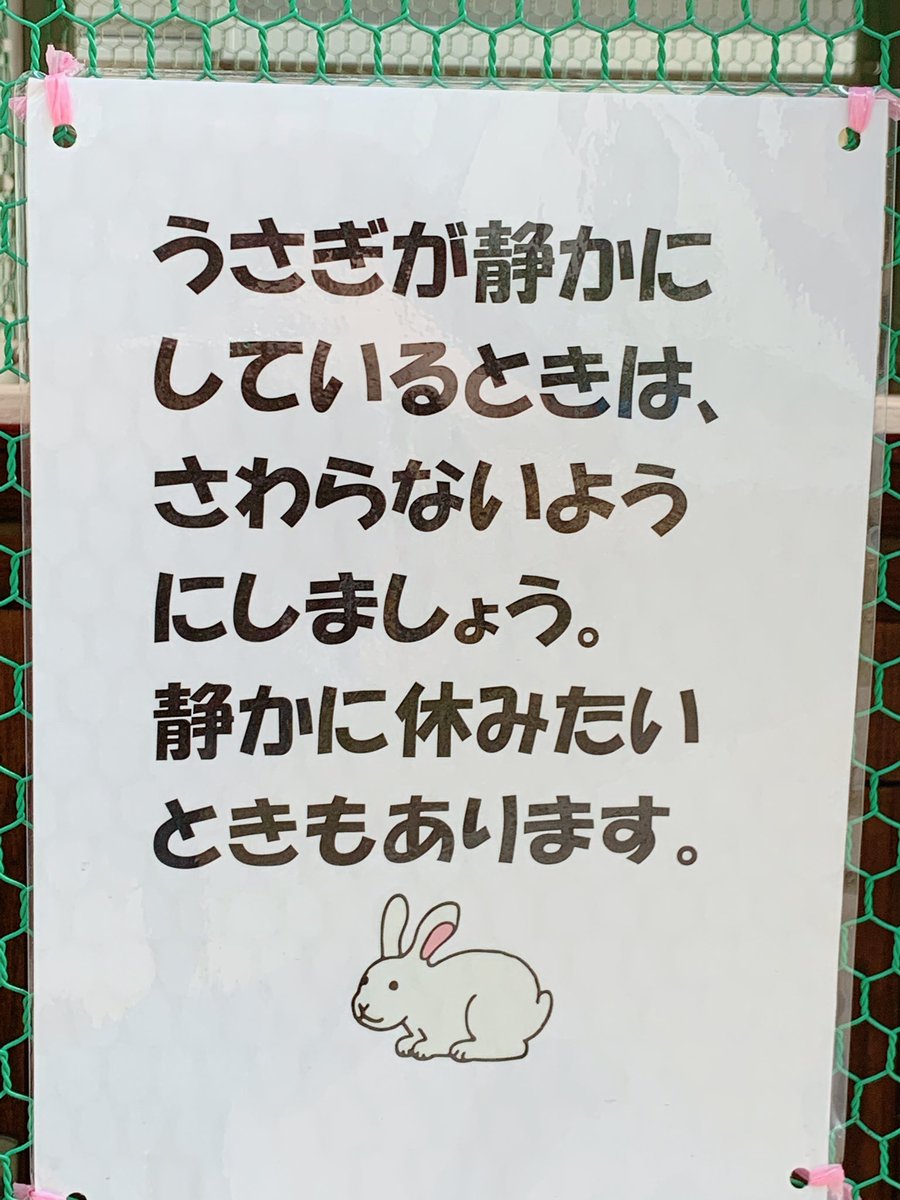 うさぎが静かに
しているときは、
さわらないよう
にしましょう。
静かに休みたい
ときもあります。